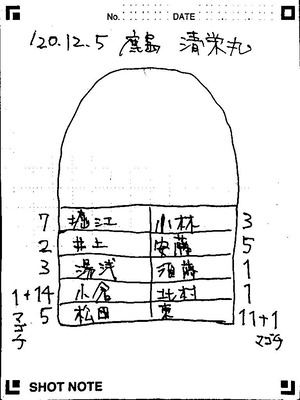 No. DATE
'20.12.5 鹿島 清栄丸
7 堀江 小林 3
2 井上 安藤 5
3 湯浅 須藤 1
1+14 小倉 北村 1
マゴチ 5 松田 東 11+1 マゴチ
SHOT NOTE